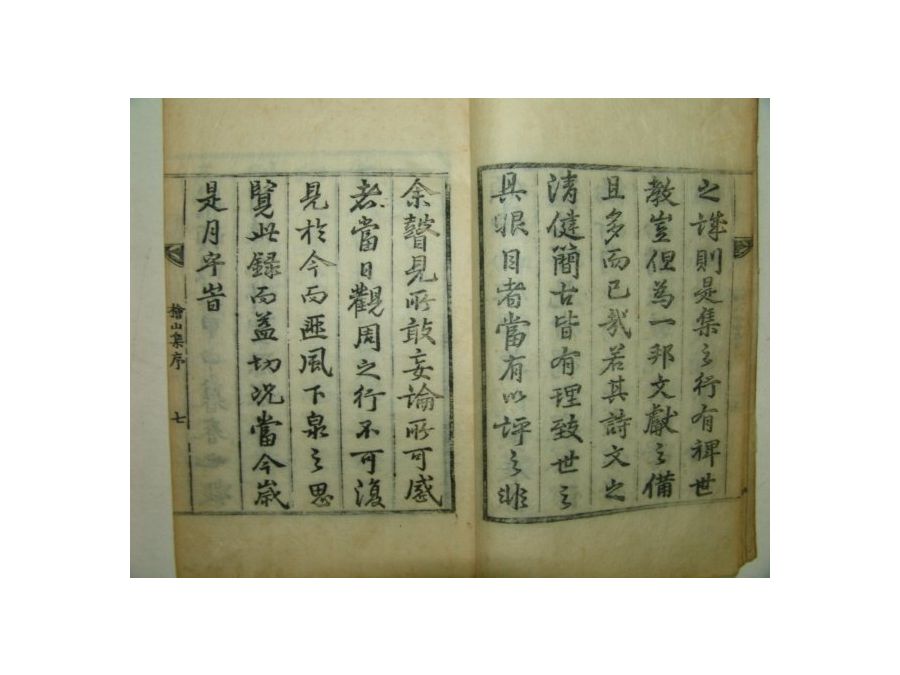 之 則是集之行有裨世
教豈但為一邦文獻之備
且多而已哉若其詩文之
清健簡古皆有理致世之
具眼目者當有以評之非
余瞽見所敢妄論所可感
者當日觀周之行不可復
見於今而匪風下泉之思
覽此録而益切况當今歲
是月乎旹
檜山集序 七